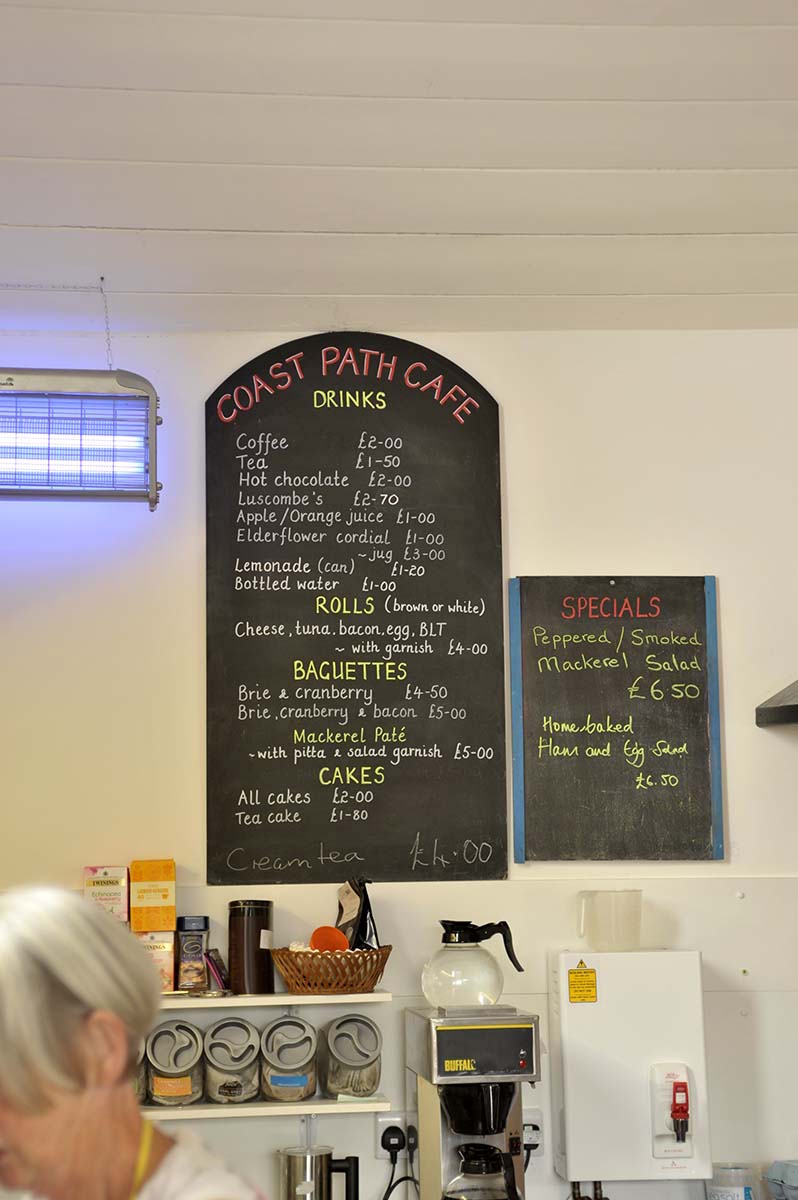 COAST PATH CAFE
DRINKS
Coffee £2-00
Tea £1-50
Hot chocolate £2-00
Luscombe's £2-70
Apple/Orange juice £1-00
Elderflower cordial £1-00
~jug £3-00
Lemonade (can) £1-20
Bottled water £1-00
ROLLS (brown or white)
Cheese, tuna. bacon, egg, BLT
~ with garnish £4-00
BAGUETTES
Brie & cranberry £4-50
Brie, cranberry & bacon £5-00
Mackerel Paté
~with pitta & salad garnish £5-00
CAKES
All cakes £2-00
Tea cake £1-80
Cream tea £4.00
SPECIALS
Peppered / Smoked
Mackerel Salad
£6 50
Home baked
Ham and Egg Salad
£6.50
TWININGS
Echinacea
TWININGS
BUFFALO